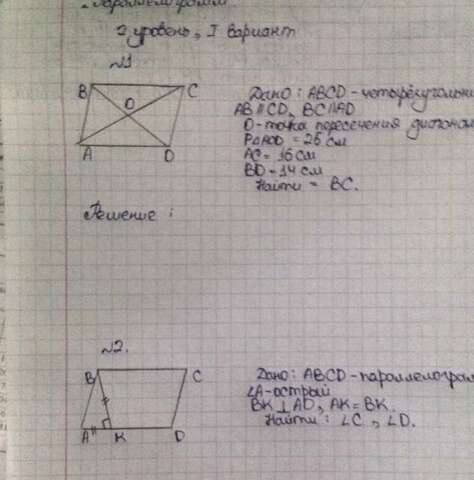 Параллелограмм
2 уровень, I вариант
№1
B C
O
A D
Дано: ABCD - четырёхугольни
AB || CD, BC || AD
O - точка пересечения диагонал
P△AOD = 25 см
AC = 16 см
BD = 14 см
Найти = BC.
Решение :
№2.
B C
A K D
Дано: ABCD - параллелограм
∠A - острый
BK ⊥ AD, AK = BK.
Найти : ∠C, ∠D.